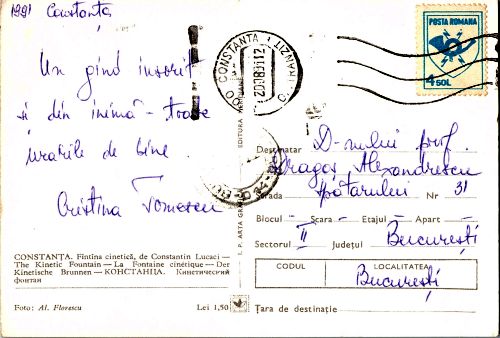 1991 Constanța
Un gînd însorit
și din inimă - toate
urările de bine
Cristina Tomescu
CONSTANȚA. Fîntîna cinetică, de Constantin Lucaci —
The Kinetic Fountain — La Fontaine cinétique — Der
Kinetische Brunnen — КОНСТАНЦА. Кинетический
фонтан
Foto: Al. Florescu
Lei 1,50
EDITURA MERIDIANE
I. P. ARTA GRAFICĂ
CONSTANTA
TRANZIT
POSTA ROMANA
4,50L
Destinatar D-nului prof.
Dragoș Alexandrescu
Strada Spătarului Nr 31
Blocul — Scara — Etajul — Apart —
Sectorul II Județul București
CODUL
LOCALITATEA
București
Țara de destinație